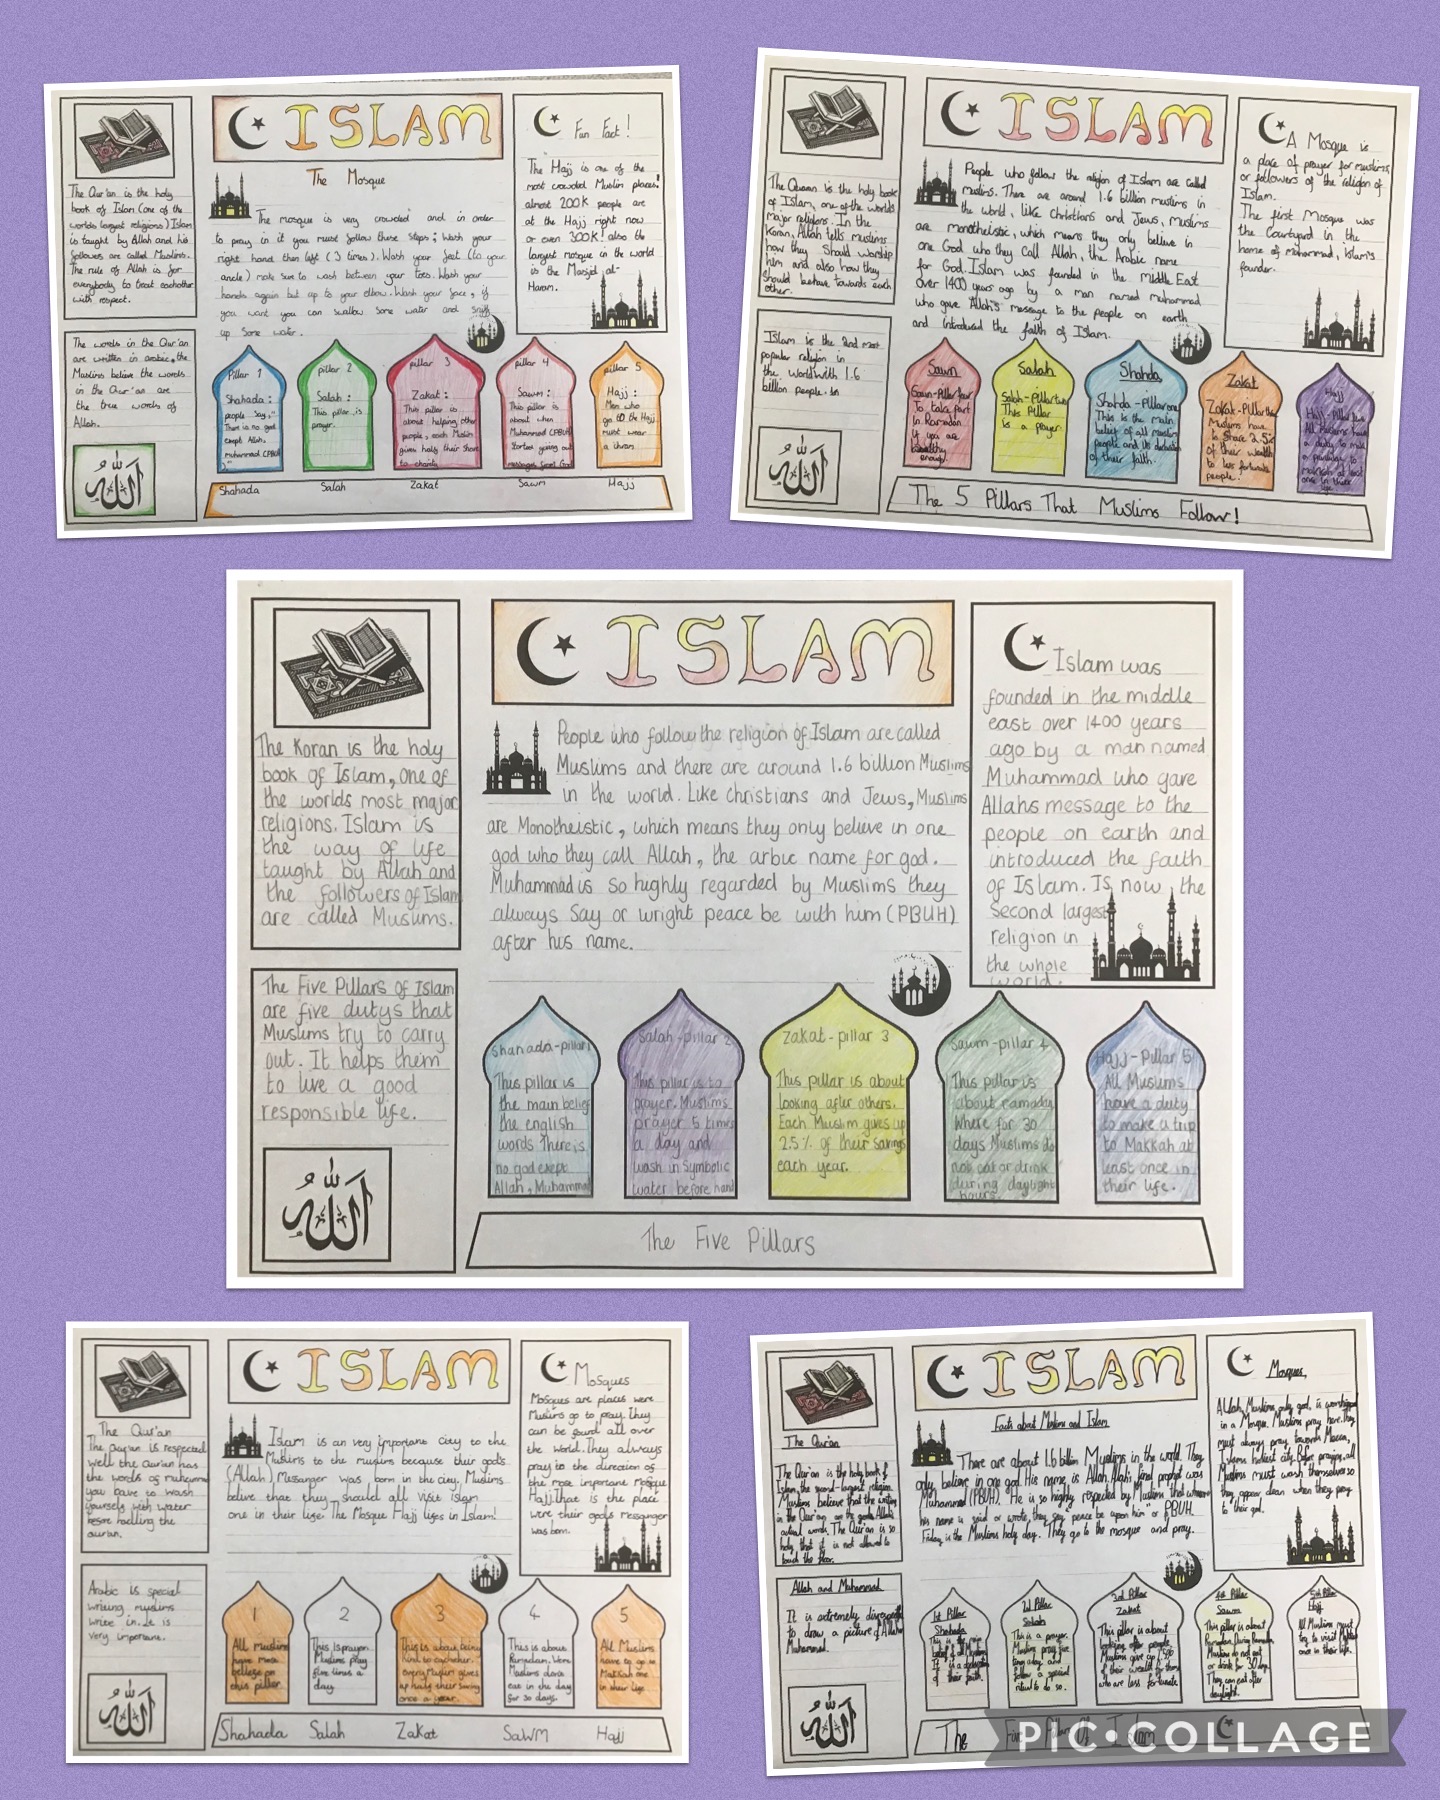 ISLAM
The Qur'an is the holy
book of Islam (one of the
worlds largest religions.) Islam
is taught by Allah and his
followers are called Muslims.
The rule of Allah is for
everybody to treat eachother
with respect.
The words in the Qur'an
are written in arabic, the
Muslims believe the words
in the Qur'an are
the true words of
Allah.
الله
The Mosque
The mosque is very crowded and in order
to pray in it you must follow these steps; Wash your
right hand then left (3 times). Wash your feet (to your
ancle) make sure to wash between your toes. Wash your
hands again but up to your elbow. Wash your face, if
you want you can swallow some water and sniff
up some water.
Fun Fact!
The Hajj is one of the
most crowded Muslim places!
almost 200k people are
at the Hajj right now
or even 300k! also the
largest mosque in the world
is the Masjid al-
Haram.
Pillar 1
Shahada:
people say,"
There is no god
exept Allah,
Muhammad (PBUH)
pillar 2
Salah:
This pillar is
prayer.
pillar 3
Zakat:
This pillar is
about helping other
people, each Muslim
gives half their share
to charity
pillar 4
Sawm:
This pillar is
about when
Muhammad (PBUH)
started giving out
messages from God
pillar 5
Hajj:
Men who
go to the Hajj
must wear
a ihram.
Shahada Salah Zakat Sawm Hajj
ISLAM
The Quran is the holy book
of Islam, one of the worlds
major religions. In the
Koran, Allah tells muslims
how they should worship
him and also how they
should behave towards each
other.
Islam is the 2nd most
popular religion in
the world with 1.6
billion people in
الله
People who follow the religion of Islam are called
muslims. There are around 1.6 billion muslims in
the world, like Christians and Jews, muslims
are monotheistic, which means they only believe in
one God who they call Allah, the Arabic name
for God. Islam was founded in the middle East
over 1400 years ago by a man named muhammad
who gave Allah's message to the people on earth
and introduced the faith of Islam.
A Mosque is
a place of prayer for muslims,
or followers of the religion of
Islam.
The first Mosque was
the courtyard in the
home of Mohammad, Islam's
founder.
Sawm
Sawm-Pillar four
To take part
in Ramadan
if you are
healthy
enough.
Salah
Salah-Pillar two
This Pillar
is a prayer
Shahda
Shahda-Pillar one
This is the main
belief of all muslim
people and its declaration
of their faith.
Zakat
Zakat-Pillar three
Muslims have
to share 2.5%
of their wealth
to less fortunate
people.
Hajj
All Muslims have
a duty to make
Makkah at least
once in their
life.
The 5 Pillars That Muslims Follow!
ISLAM
The Koran is the holy
book of Islam, one of
the worlds most major
religions. Islam is
the way of life
taught by Allah and
the followers of Islam
are called Muslims.
The Five Pillars of Islam
are five dutys that
Muslims try to carry
out. It helps them
to live a good
responsible life.
الله
People who follow the religion of Islam are called
Muslims and there are around 1.6 billion Muslims
in the world. Like christians and Jews, Muslims
are Monotheistic, which means they only believe in one
god who they call Allah, the arbic name for god.
Muhammad is so highly regarded by Muslims they
always say or wright peace be with him (PBUH)
after his name.
Islam was
founded in the middle
east over 1400 years
ago by a man named
Muhammad who gave
Allahs message to the
people on earth and
introduced the faith
of Islam. Is now the
second largest
religion in
the whole
world.
Shahada-pillar 1
This pillar is
the main belief
the english
words There is
no god exept
Allah, Muhammad
Salah-pillar 2
This pillar is to
prayer. Muslims
prayer 5 times
a day and
wash in symbolic
water before hand
Zakat-pillar 3
This pillar is about
looking after others.
Each Muslim gives up
2.5% of their savings
each year.
Sawm-pillar 4
This pillar is
about ramadan
where for 30
days Muslims do
not eat or drink
during daylight
hours.
Hajj-Pillar 5
All Muslims
have a duty
to make a trip
to Makkah at
least once in
their life.
The Five Pillars
ISLAM
The Qur'an
The Qur'an is respected
well the Qur'an has
the words of muhammad
you have to wash
yourself with water
before holding the
qur'an.
Arabic is special
writing muslims
write in. It is
very importane.
الله
Islam is an very important city to the
Muslims to the muslims because their god's
(Allah) Messanger was born in the city. Muslims
belive that they should all visit Islam
one in their life. The Mosque Hajj lives in Islam!
Mosques
Mosques are places were
Muslims go to pray. They
can be found all over
the world. They always
pray to the direction of
the most importane Mosque
Hajj. That is the place
were their god's messanger
was born.
1
All muslims
have more
beliefe on
this pillar.
2
This is prayer.
Muslims pray
five times a
day
3
This is about being
kind to eachother
every Muslim gives
up half their saving
once a year.
4
This is about
Ramadam. Were
Muslims dont
eat in the day
for 30 days.
5
All Muslims
have to go to
Makkah one
in their life
Shahada Salah Zakat SaWM Hajj
ISLAM
The Qur'an
The Qur'an is the holy book of
Islam, the second-largest religion.
Muslims believe that the writing
in the Qur'an are the gods, Allah's
actual words. The Qur'an is so
holy that it is not allowed to
touch the floor.
Allah and Muhammad
It is extremely disrespectful
to draw a picture of Allah or
Muhammad.
الله
Facts about Muslims and Islam
There are about 1.6 billion Muslims in the world. They
only believe in one god. His name is Allah. Allah's final prophet was
Muhammad (PBUH). He is so highly respected by Muslims that whenever
his name is said or wrote, they say peace be upon him or PBUH.
Friday is the Muslims holy day. They go to the mosque and pray.
Mosques,
Allah, Muslims only god, is worshipped
in a Mosque. Muslims pray here. They
must always pray towards Mecca,
Islams holiest city. Before praying, all
Muslims must wash themselves so
they appear clean when they pray
to their god.
1st Pillar
Shahada
This is the main
belief of all Muslims
It is a declaration
of their faith.
2nd Pillar
Salah
This is a prayer.
Muslims pray five
times a day and
follow a special
ritual to do so.
3rd Pillar
Zakat
This pillar is about
looking after people.
Muslims give up 2.5%
of their wealth for those
who are less fortunate
4th Pillar
Sawm
This pillar is about
Ramadan. During Ramadan,
Muslims do not eat
or drink for 30 days.
They can eat after
daylight.
5th Pillar
Hajj
All Muslims must
try to visit Makkah
once in their life.
The Five Pillars Of Islam
PIC•COLLAGE